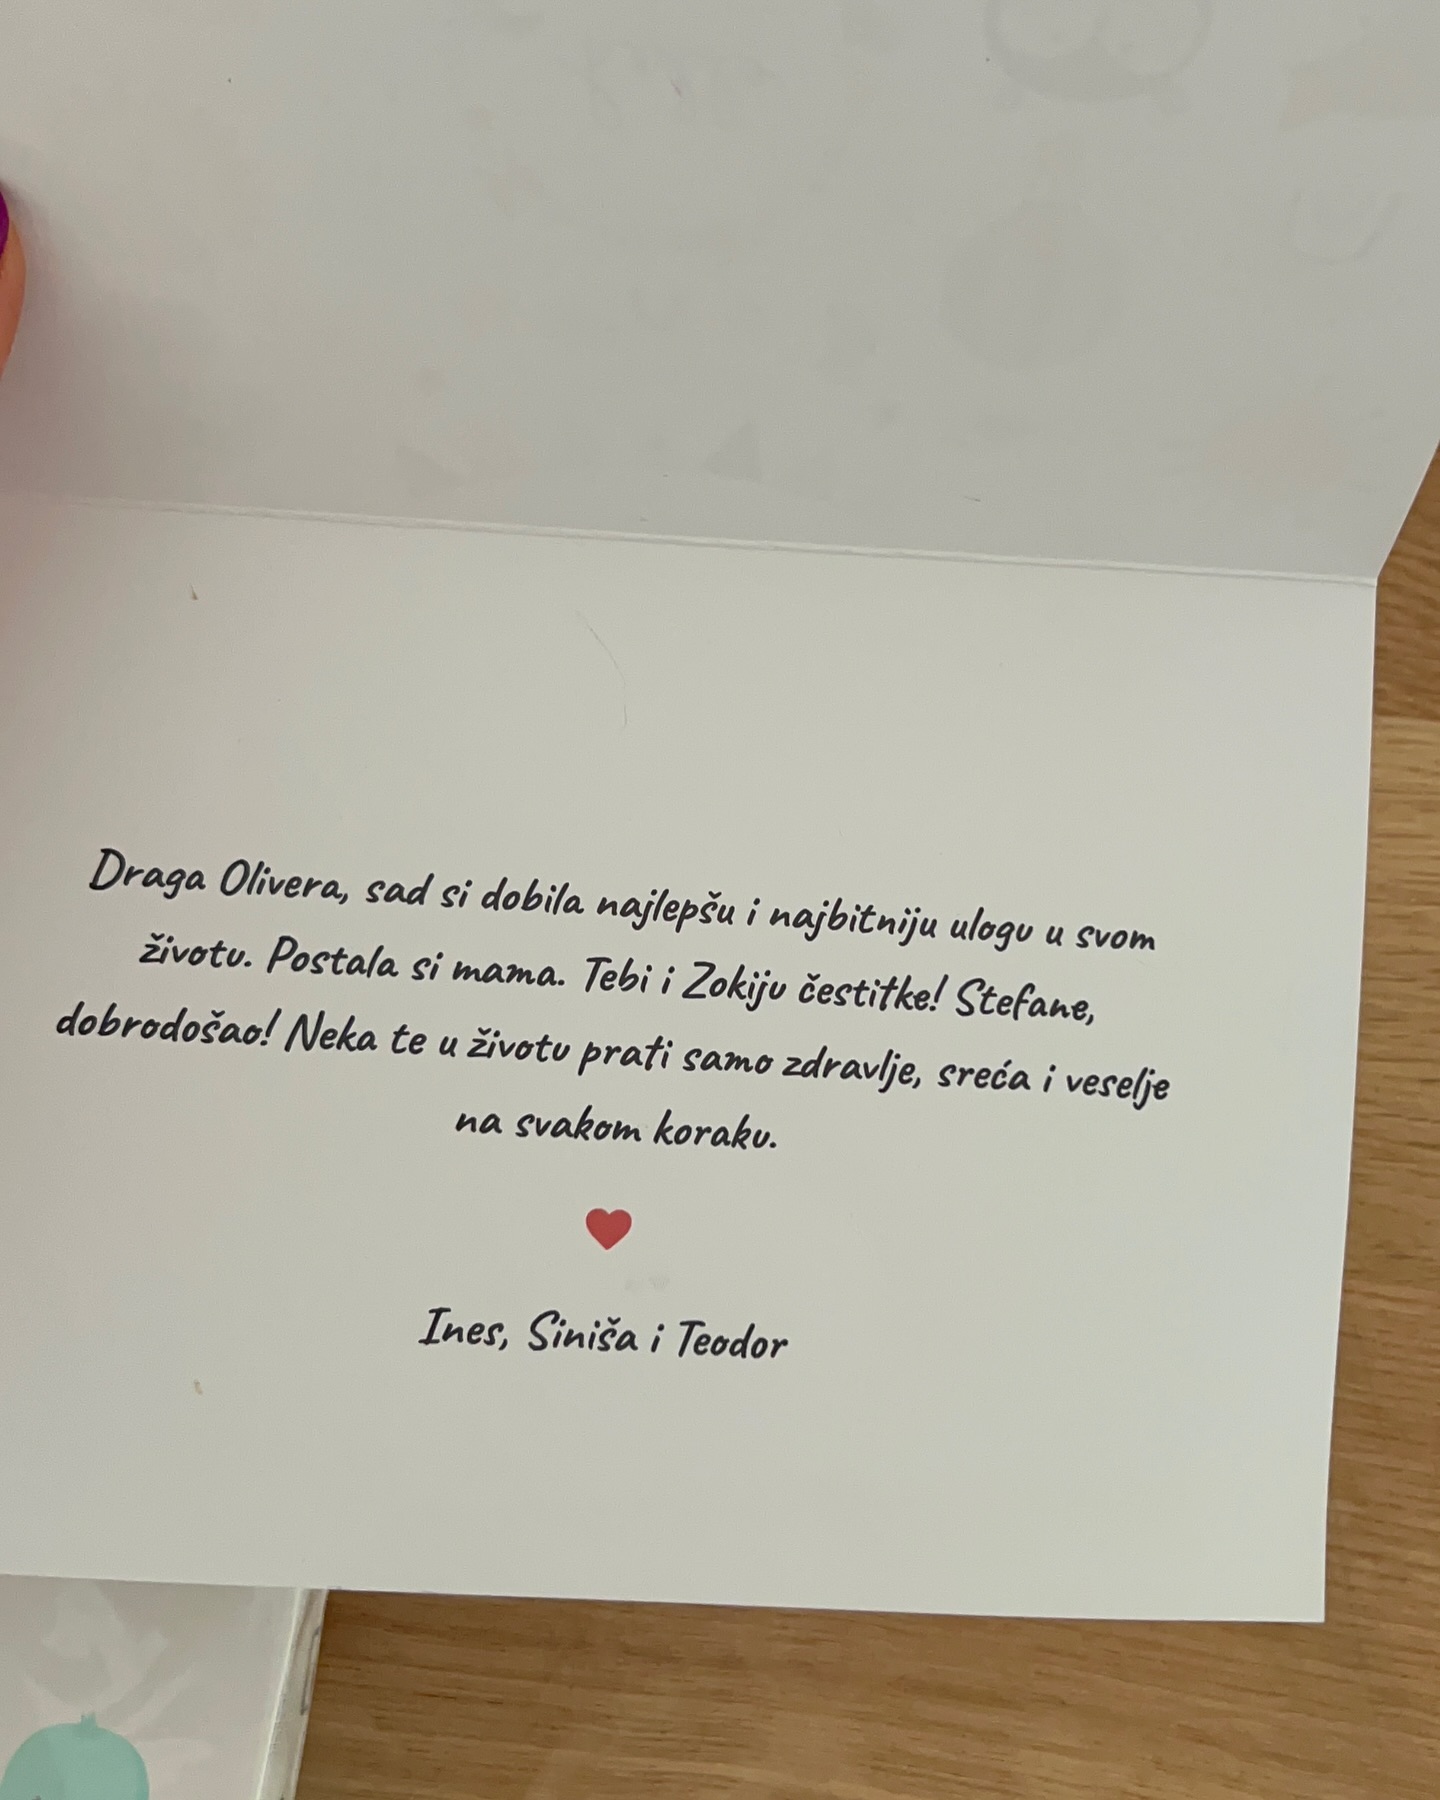 Draga Olivera, sad si dobila najlepšu i najbitniju ulogu u svom
životu. Postala si mama. Tebi i Zokiju čestitke! Stefane,
dobrodošao! Neka te u životu prati samo zdravlje, sreća i veselje
na svakom koraku.
Ines, Siniša i Teodor